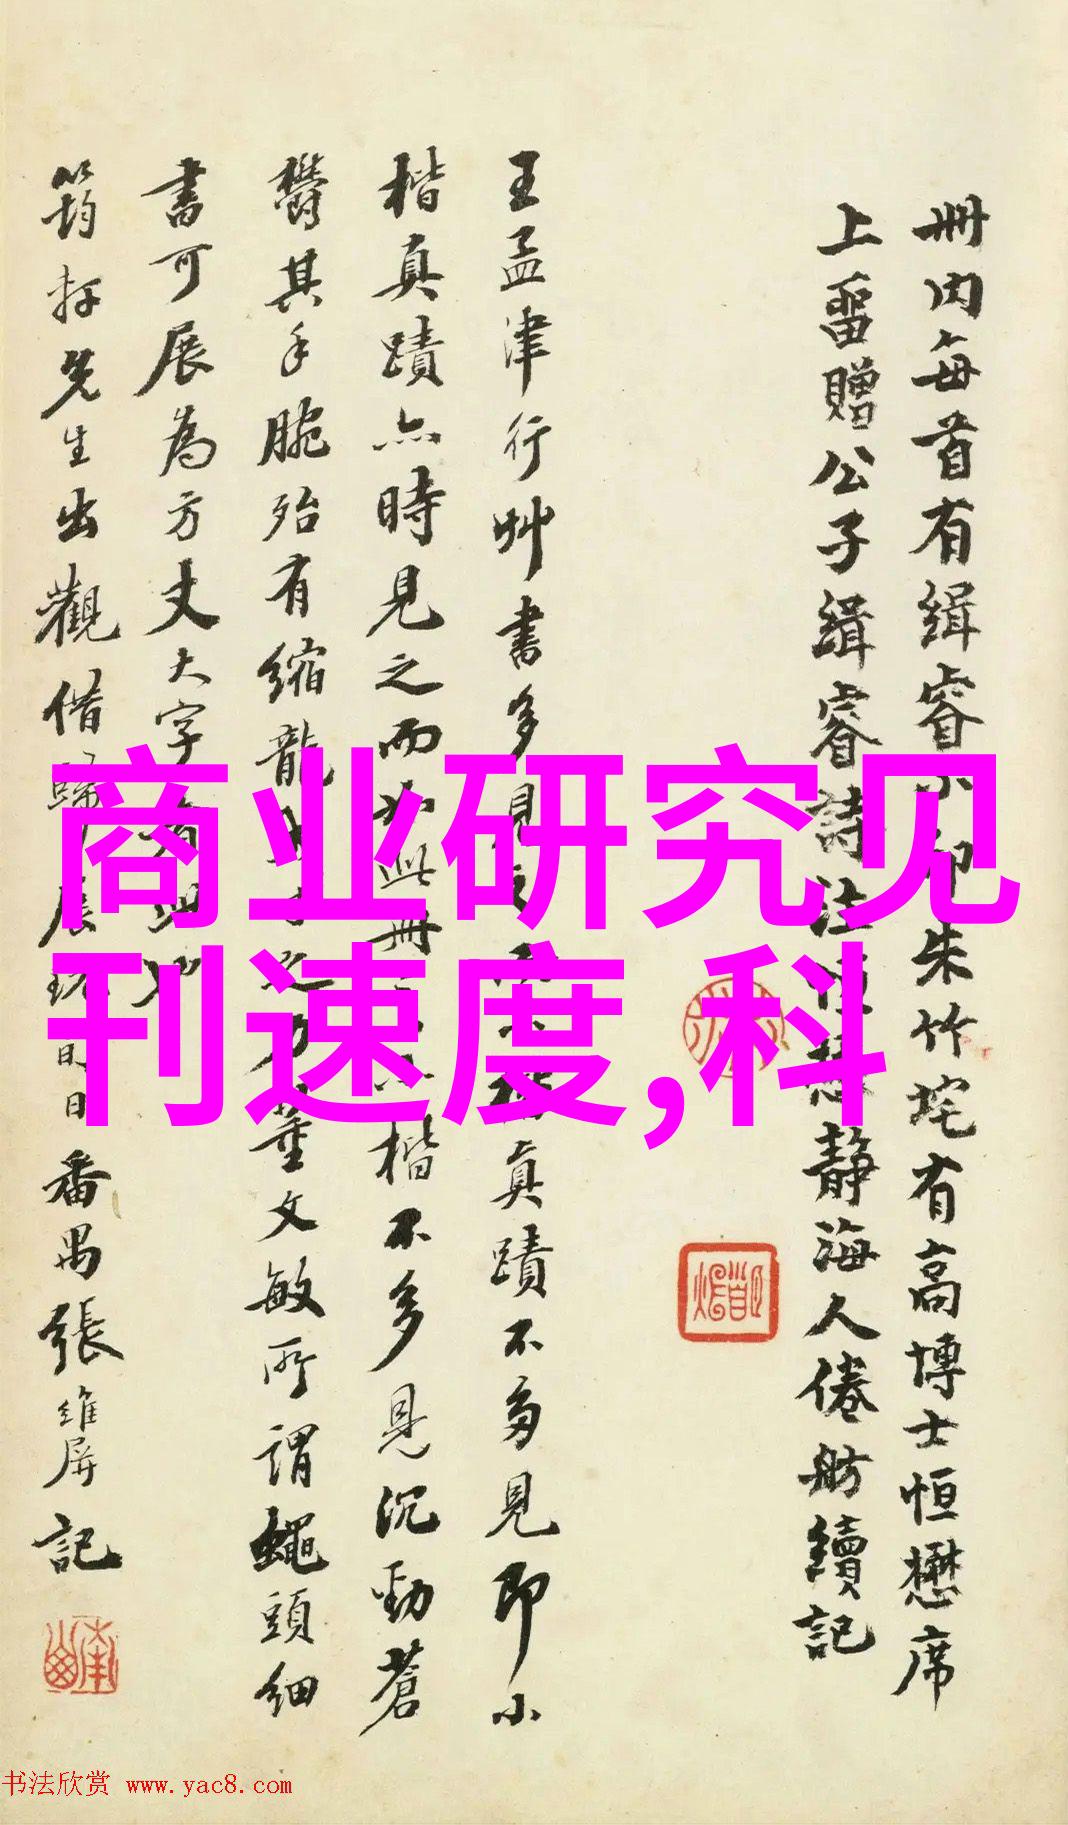 冊内每首有緝睿小印朱竹垞有高博士恒懋席
上畱贈公子緝睿詩注恒懋靜海人倦舫續記
王孟津行艸書多見真蹟不多見即小
楷真蹟亦時見之而如此冊楷不多見沉勁蒼
鬱其手腕殆有縮龍之力董文敏所謂蠅頭細
書可展為方丈大字
筠先生出觀借歸展日番禺張維屏記
商业研究见
刊速度,科
书法欣赏 www.yac8.com